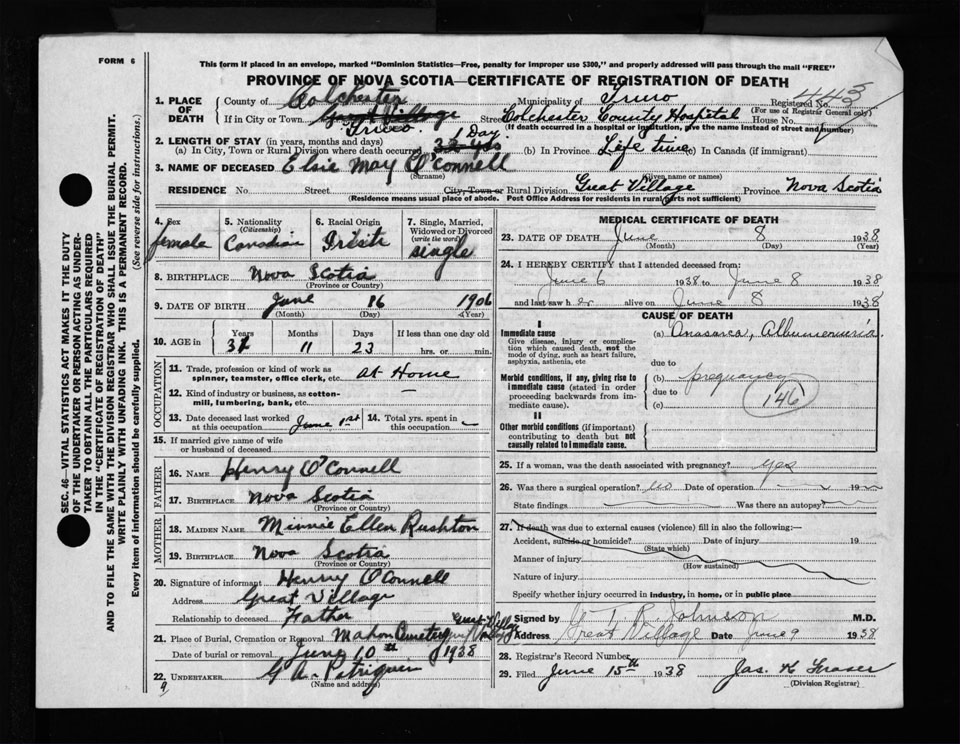 FORM 6
This form if placed in an envelope, marked "Dominion Statistics—Free, penalty for improper use $300," and properly addressed will pass through the mail "FREE"
PROVINCE OF NOVA SCOTIA—CERTIFICATE OF REGISTRATION OF DEATH
1. PLACE OF DEATH
County of Colchester Municipality of Truro Registered No.
(For use of Registrar General only)
If in City or Town Great Village Truro. Street Colchester County Hospital House No.
(If death occurred in a hospital or institution, give the name instead of street and number)
2. LENGTH OF STAY (in years, months and days)
(a) In City, Town or Rural Division where death occurred 1 Day (b) In Province Life time (c) In Canada (if immigrant)
3. NAME OF DECEASED Elsie May O'Connell
(Surname) (Given name or names)
RESIDENCE No. Street City, Town or Rural Division Great Village Province Nova Scotia
(Residence means usual place of abode. Post Office Address for residents in rural parts not sufficient)
4. Sex female
5. Nationality (Citizenship) Canadian
6. Racial Origin Irish
7. Single, Married, Widowed or Divorced (write the word) single
8. BIRTHPLACE Nova Scotia
(Province or Country)
9. DATE OF BIRTH June 16 1906
(Month) (Day) (Year)
10. AGE in Years Months Days If less than one day old
11 23 hrs. or min.
OCCUPATION
11. Trade, profession or kind of work as spinner, teamster, office clerk, etc. at Home
12. Kind of industry or business, as cotton-mill, lumbering, bank, etc. —
13. Date deceased last worked at this occupation June 1st 14. Total yrs. spent in this occupation —
15. If married give name of wife or husband of deceased
FATHER
16. NAME Henry O'Connell
17. BIRTHPLACE Nova Scotia
(Province or Country)
MOTHER
18. MAIDEN NAME Minnie Ellen Rushton
19. BIRTHPLACE Nova Scotia
(Province or Country)
20. Signature of informant Henry O'Connell
Address Great Village
Relationship to deceased Father
21. Place of Burial, Cremation or Removal Mahon Cemetery Great Village
Date of burial or removal June 10th 1938
22. UNDERTAKER G A
(Name and address)
9
MEDICAL CERTIFICATE OF DEATH
23. DATE OF DEATH June 8 1938
(Month) (Day) (Year)
24. I HEREBY CERTIFY that I attended deceased from:
June 6 1938 to June 8 1938
and last saw her alive on June 8 1938
CAUSE OF DEATH
I
Immediate cause
Give disease, injury or complication which caused death, not the mode of dying, such as heart failure, asphyxia, asthenia, etc
(a) Anasarca, Albumenuria
due to
Morbid conditions, if any, giving rise to immediate cause (stated in order proceeding backwards from immediate cause).
(b) pregnancy
due to
(c)
146
II
Other morbid conditions (if important) contributing to death but not causally related to immediate cause.
25. If a woman, was the death associated with pregnancy? yes
26. Was there a surgical operation? no Date of operation — 19 —
State findings — Was there an autopsy? —
27. If death was due to external causes (violence) fill in also the following:—
Accident, suicide or homicide? Date of injury 19
(State which)
Manner of injury
(How sustained)
Nature of injury
Specify whether injury occurred in industry, in home, or in public place
Signed by W T R Johnson M.D.
Address Great Village Date June 9 1938
28. Registrar's Record Number
29. Filed June 15th 1938 Jas. H Fraser
(Division Registrar)
SEC. 46—VITAL STATISTICS ACT MAKES IT THE DUTY
OF THE UNDERTAKER OR PERSON ACTING AS UNDER-
TAKER TO OBTAIN ALL THE PARTICULARS REQUIRED
IN THE "CERTIFICATE OF REGISTRATION OF DEATH"
AND TO FILE THE SAME WITH THE DIVISION REGISTRAR WHO SHALL ISSUE THE BURIAL PERMIT.
WRITE PLAINLY WITH UNFADING INK. THIS IS A PERMANENT RECORD.
Every item of information should be carefully supplied. (See reverse side for instructions.)